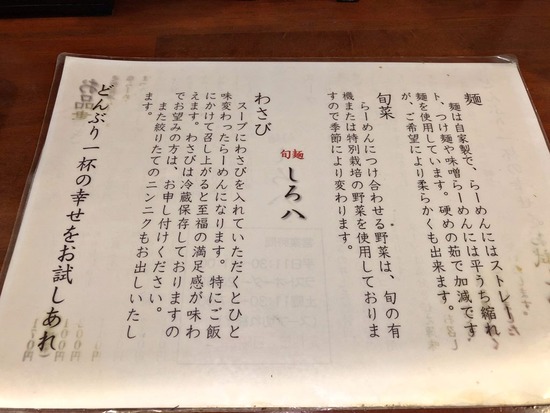 麺
麺は自家製で、らーめんにはストレー
ト、つけ麺や味噌らーめんには平うち縮れ
麺を使用しています。硬めの茹で加減です
が、ご希望により柔らかくも出来ます。
旬菜
らーめんにつけ合わせる野菜は、旬の有
機または特別栽培の野菜を使用しておりま
すので季節により変わります。
旬麺
しろ八
わさび
スープにわさびを入れていただくとひと
味変わったらーめんになります。特にご飯
にかけて召し上がると至福の満足感が味わ
えます。わさびは冷蔵保存しておりますの
でお望みの方は、お申し付けください。
また絞りたてのニンニクもお出しいたし
ます。
どんぶり一杯の幸せをお試しあれ